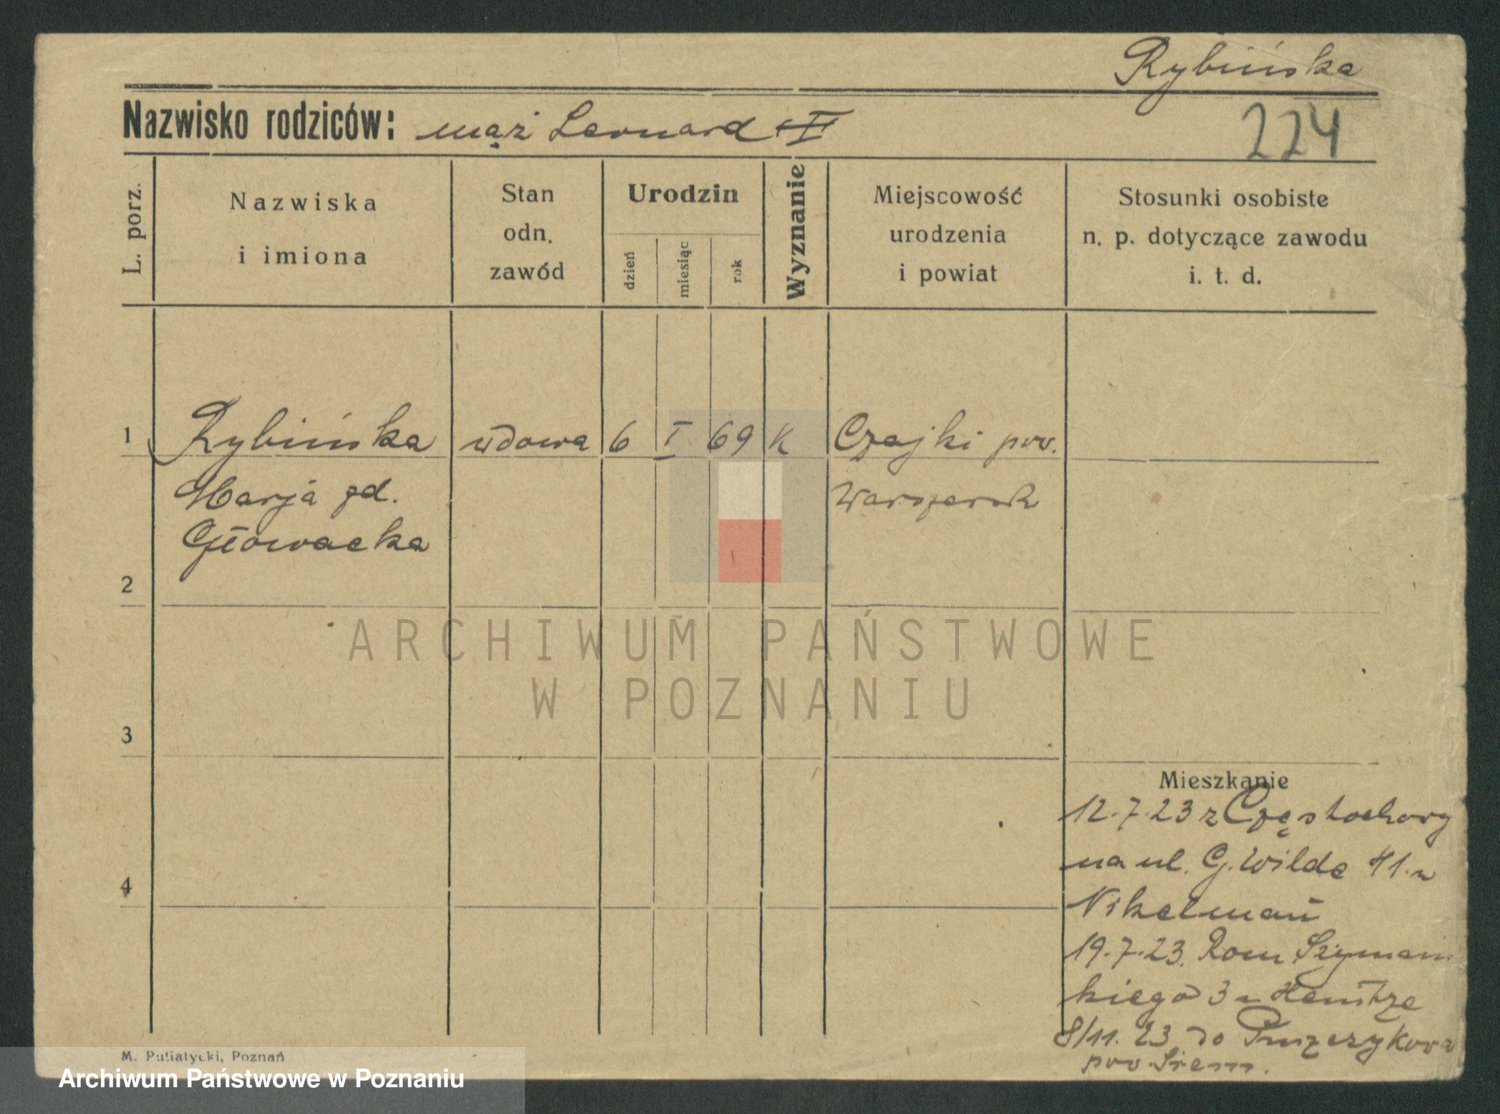 Rybińska
Nazwisko rodziców: mąż Leonard
224
L. porz.
Nazwiska
i imiona
Stan
odn.
zawód
Urodzin
dzień
miesiąc
rok
Wyznanie
Miejscowość
urodzenia
i powiat
Stosunki osobiste
n. p. dotyczące zawodu
i. t. d.
1 Rybińska wdowa 6 I 69 K Czajki pow.
Marja zd. Warszawsk
Głowacka
2
ARCHIWUM PAŃSTWOWE
W POZNANIU
3
Mieszkanie
12.7.23 z Częstochowy
na ul. G. Wilde 41
4
19.7.23. Rom Szymań
kiego 3 u
8/11. 23 do
pow Śrem.
M. Putiatycki, Poznań
Archiwum Państwowe w Poznaniu